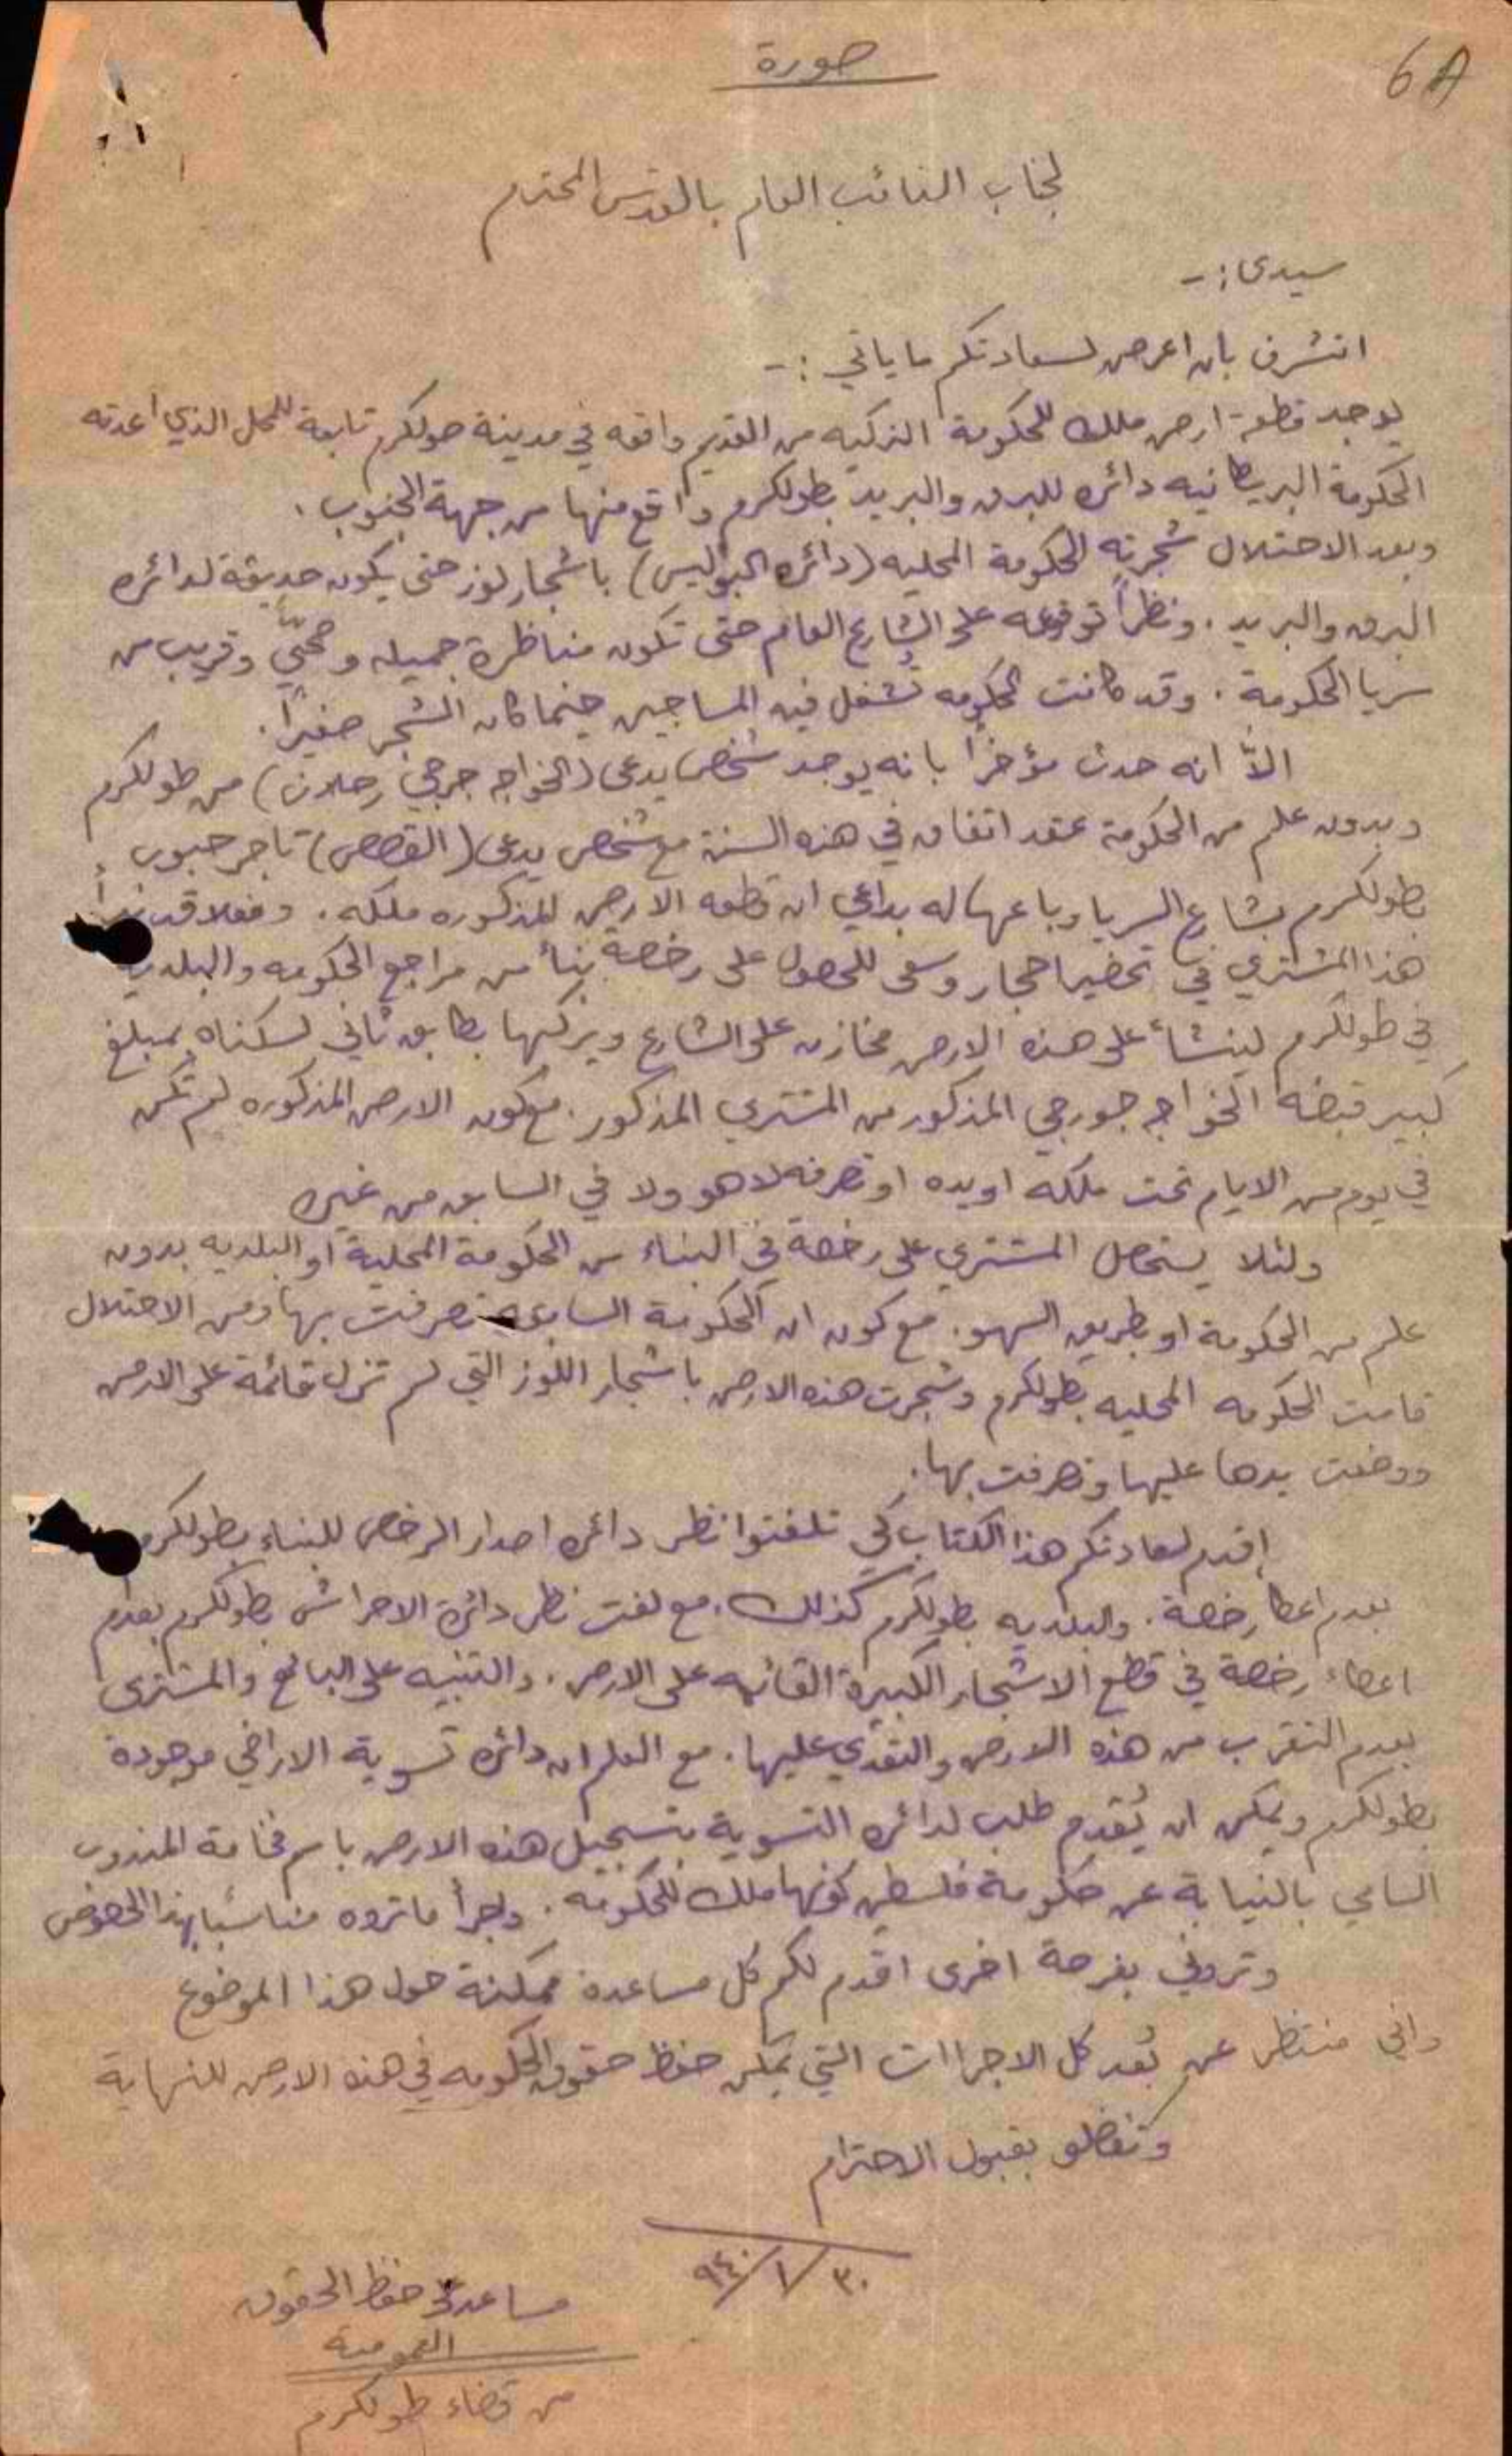 6A
صورة
لجناب النائب العام بالقدس المحترم
سيدي :-
اتشرف بان اعرض لسعادتكم ما ياتي :-
يوجد قطعة ارض ملك للحكومة التركيه من القديم واقعه في مدينة طولكرم تابعة للمحل الذي اعدته
الحكومة البريطانيه دائره للبرق والبريد بطولكرم واقع منها من جهة الجنوب .
وبعد الاحتلال شجرته الحكومة المحليه (دائره البوليس) باشجار لوز حتى يكون حديقة لدائره
البرق والبريد . ونظراً لوقوعه على الشارع العام حتى تكون مناظرة جميله وصحيّ وقريب من
سريا الحكومة . وقد كانت الحكومه تُشغل فيه المساجين حينما كان الشجر صغيراً .
الاّ انه حدث مؤخراً بانه يوجد شخص يدعى (الخواجه جرجي رحلان) من طولكرم
وبدون علم من الحكومة عقد اتفاق في هذه السنة مع شخص يدعى (القصص) تاجر حبوب
بطولكرم بشارع السريا وباعها له بداعي ان قطعه الارض المذكوره ملكه . وفعلا قد بدأ
هذا المشتري في تحضير احجار وسعى للحصول على رخصة بنأ من مراجع الحكومه والبلديه
في طولكرم لينشأ على هذه الارض مخازن على الشارع ويركبها بطابق ثاني لسكناه بمبلغ
كبير قبضه الخواجه جورجي المذكور من المشتري المذكور . مع كون الارض المذكوره لم تكن
في يوم من الايام تحت ملكه او يده او تصرفه لا هو ولا في السابق من غيره
ولئلا يستحصل المشتري على رخصة في البناء من الحكومة المحلية او البلديه بدون
علم من الحكومة او بطريق السهو . مع كون ان الحكومة السابقه تصرفت بها ومن الاحتلال
قامت الحكومه المحليه بطولكرم وشجرت هذه الارض باشجار اللوز التي لم تزل قائمة على الارض
ووضعت يدها عليها وتصرفت بها .
اقدم لسعادتكم هذا الكتاب كي تلفتوا نظر دائره اصدار الرخص للبناء بطولكرم
بعدم اعطا رخصة . والبلديه بطولكرم كذلك . مع لفت نظر دائرة الاحراش بطولكرم بعدم
اعطاء رخصة في قطع الاشجار الكبيرة القائمه على الارض . والتنبيه على البائع والمشترى
بعدم التقرب من هذه الارض والتعدي عليها . مع العلم ان دائره تسوية الاراضي موجودة
بطولكرم ويمكن ان يُقدم طلب لدائره التسوية بتسجيل هذه الارض باسم فخامة المندوب
السامي بالنيابة عن حكومة فلسطين كونها ملك للحكومه . واجرأ ما تروه مناسباً بهذا الخصوص
وتروني بفرصة اخرى اقدم لكم كل مساعدة ممكنة حول هذا الموضوع
واني منتظر عن بُعد كل الاجراات التي يمكن حفظ حقوق الحكومه في هذه الارض للنهاية
وتفضلو بقبول الاحترام
٣٠/١/٩٤٠
مساعد على حفظ الحقوق
العمومية
من قضاء طولكرم